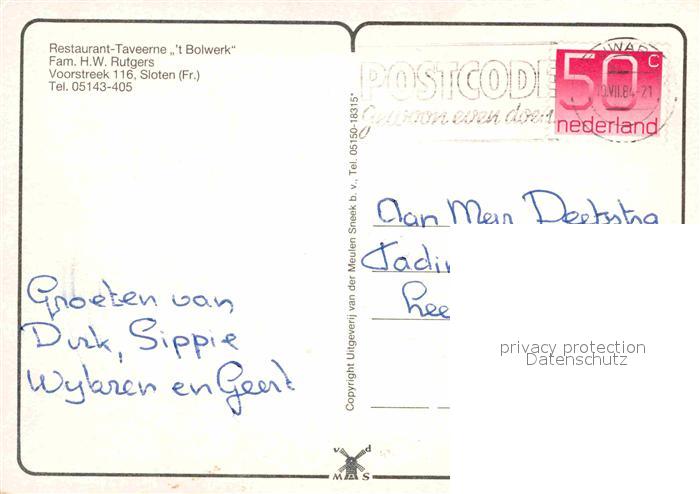 Restaurant-Taveerne „'t Bolwerk"
Fam. H.W. Rutgers
Voorstreek 116, Sloten (Fr.)
Tel. 05143-405
POSTCODE
gewoon even doen
50 c
nederland
.VII.84-21
Copyright Uitgeverij van der Meulen Sneek b.v., Tel. 05150-18315*
Aan Meir Deetstra
Groeten van
Dirk, Sippie
Wybren en Geert
privacy protection
Datenschutz
v d
M S